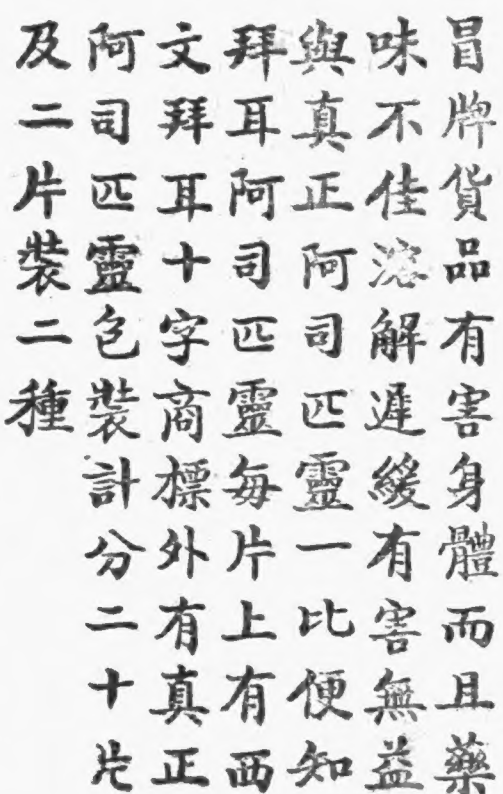 冒牌貨品有害身體而且藥
味不佳溶解遲緩有害無益
與真正阿司匹靈一比便知
拜耳阿司匹靈每片上有西
文拜耳十字商標外有真正
阿司匹靈包裝計分二十片
及二片裝二種